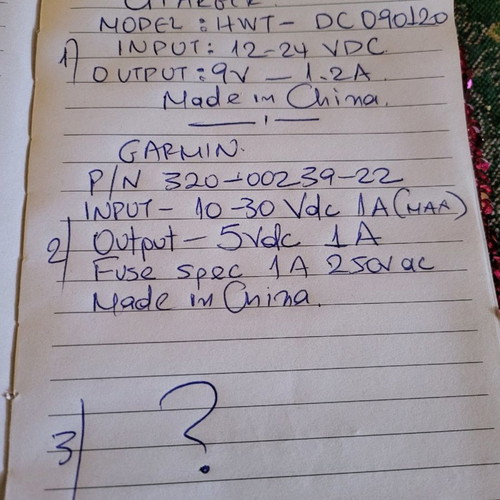 CHARGER
MODEL: HWT- DC090120
1) INPUT: 12-24 VDC
OUTPUT: 9V - 1.2A
Made in China.
GARMIN.
P/N 320-00239-22
INPUT- 10-30 Vdc 1A (MAX)
2) Output- 5Vdc 1A
Fuse spec 1A 250Vac
Made in China.
3) ?